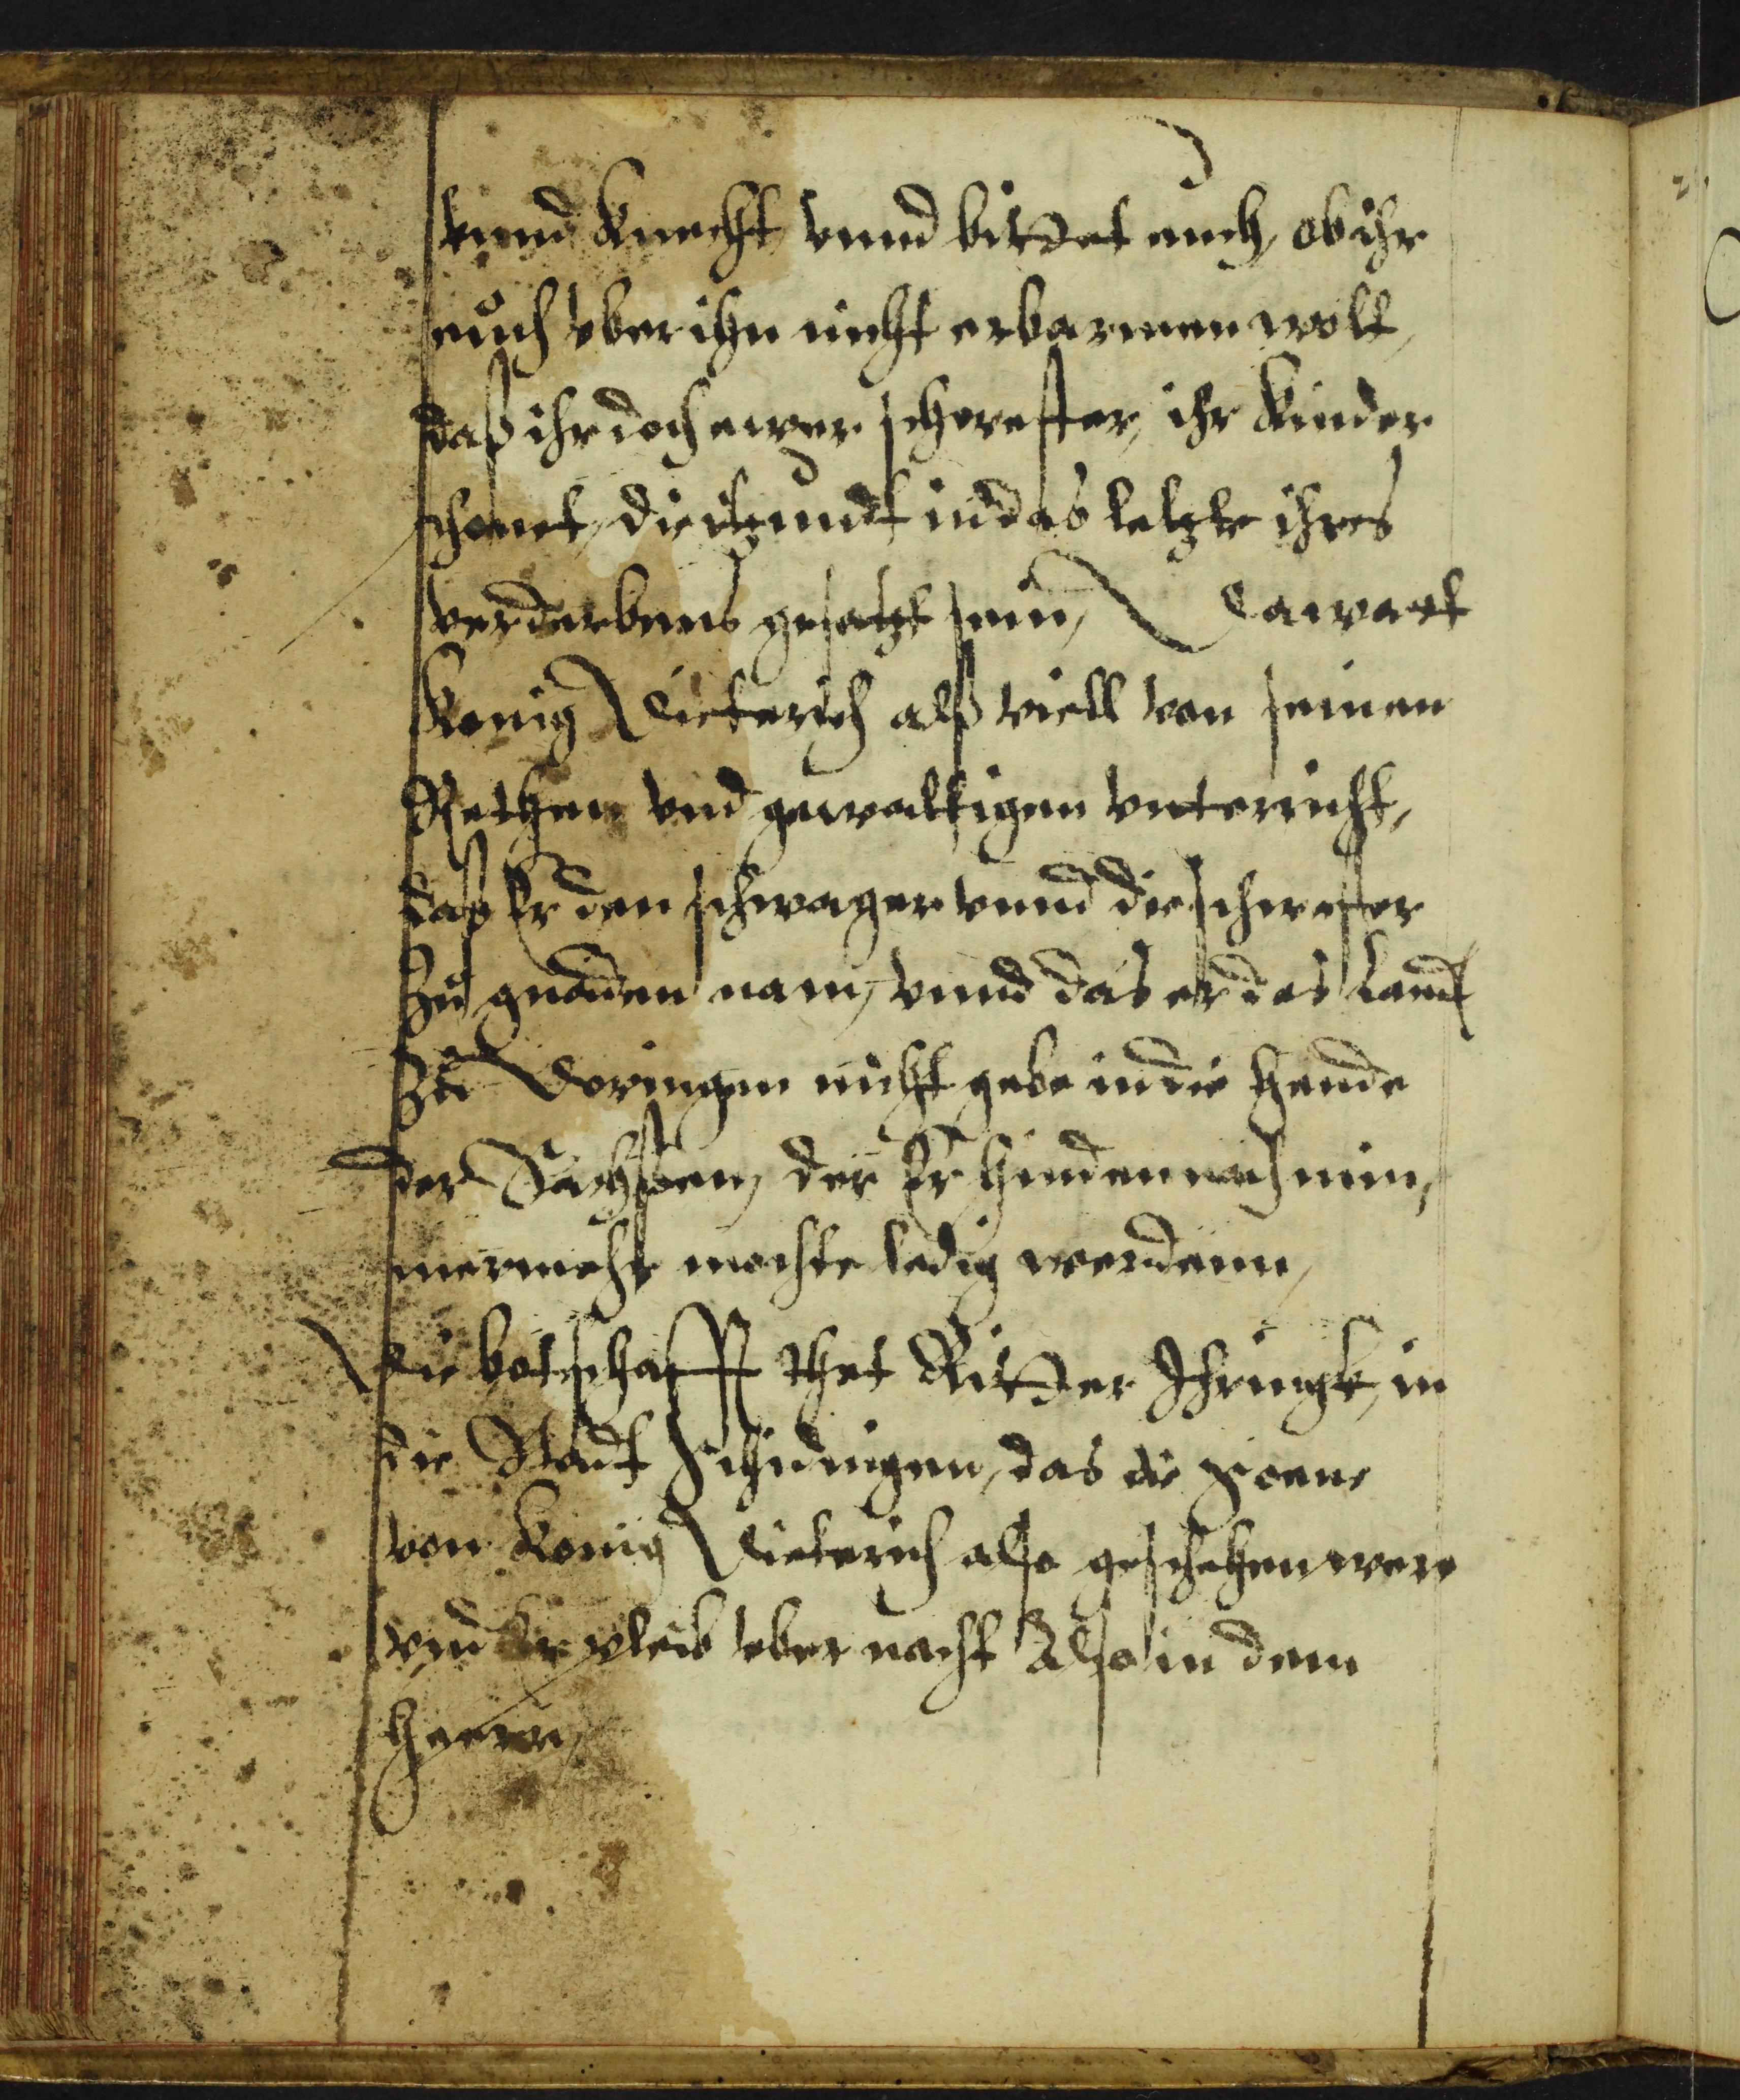 vnnd Knecht vnnd bittet euch, ob ihr
euch vber ihn nicht erbarmen wolt,
daß ihr doch ewer schwester, ihr Kinder
schonet, die itzundt in das letzte ihres
verderbens gesatzt sein, Da wart
Konig Dieterich alß viell von seinen
Rethen vnd gewaltigen vnterricht,
daß Er den schwager vnnd die schwester
zu gnaden nam, vnnd das er das Landt
zu Doringen nicht gebe in die hende
der Sachssen, der Er hinden nach nim,
mermehr mochte ledig werdenn,
Die botschafft thet Ritter Ihringk, in
die Stadt Schidingen, das die
von Konig Dieterich also geschehen were
vnd Er pleib vber nacht Also in dem
Heere,